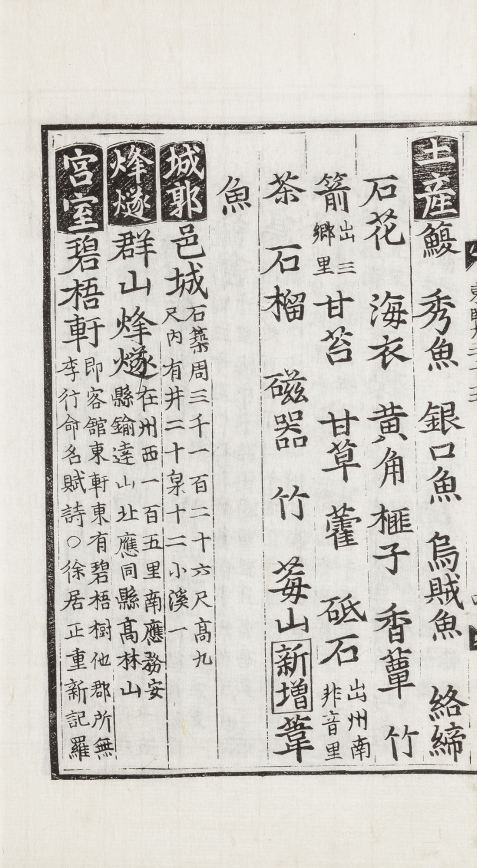 土産鰒 秀魚 銀口魚 烏賊魚 絡締
石花 海衣 黄角 榧子 香蕈 竹
箭出三鄉里 甘苔 甘草 藿 砥石出州南非音里
茶 石榴 磁器 竹 莓山 新增 葦
魚
城郭邑城石築周三千一百二十六尺高九尺內有井二十泉十二小溪一
烽燧群山烽燧在州西一百五里南應務安縣鍮達山北應同縣高林山
宮室碧梧軒即客舘東軒東有碧梧樹他郡所無李行命名賦詩○徐居正重新記羅